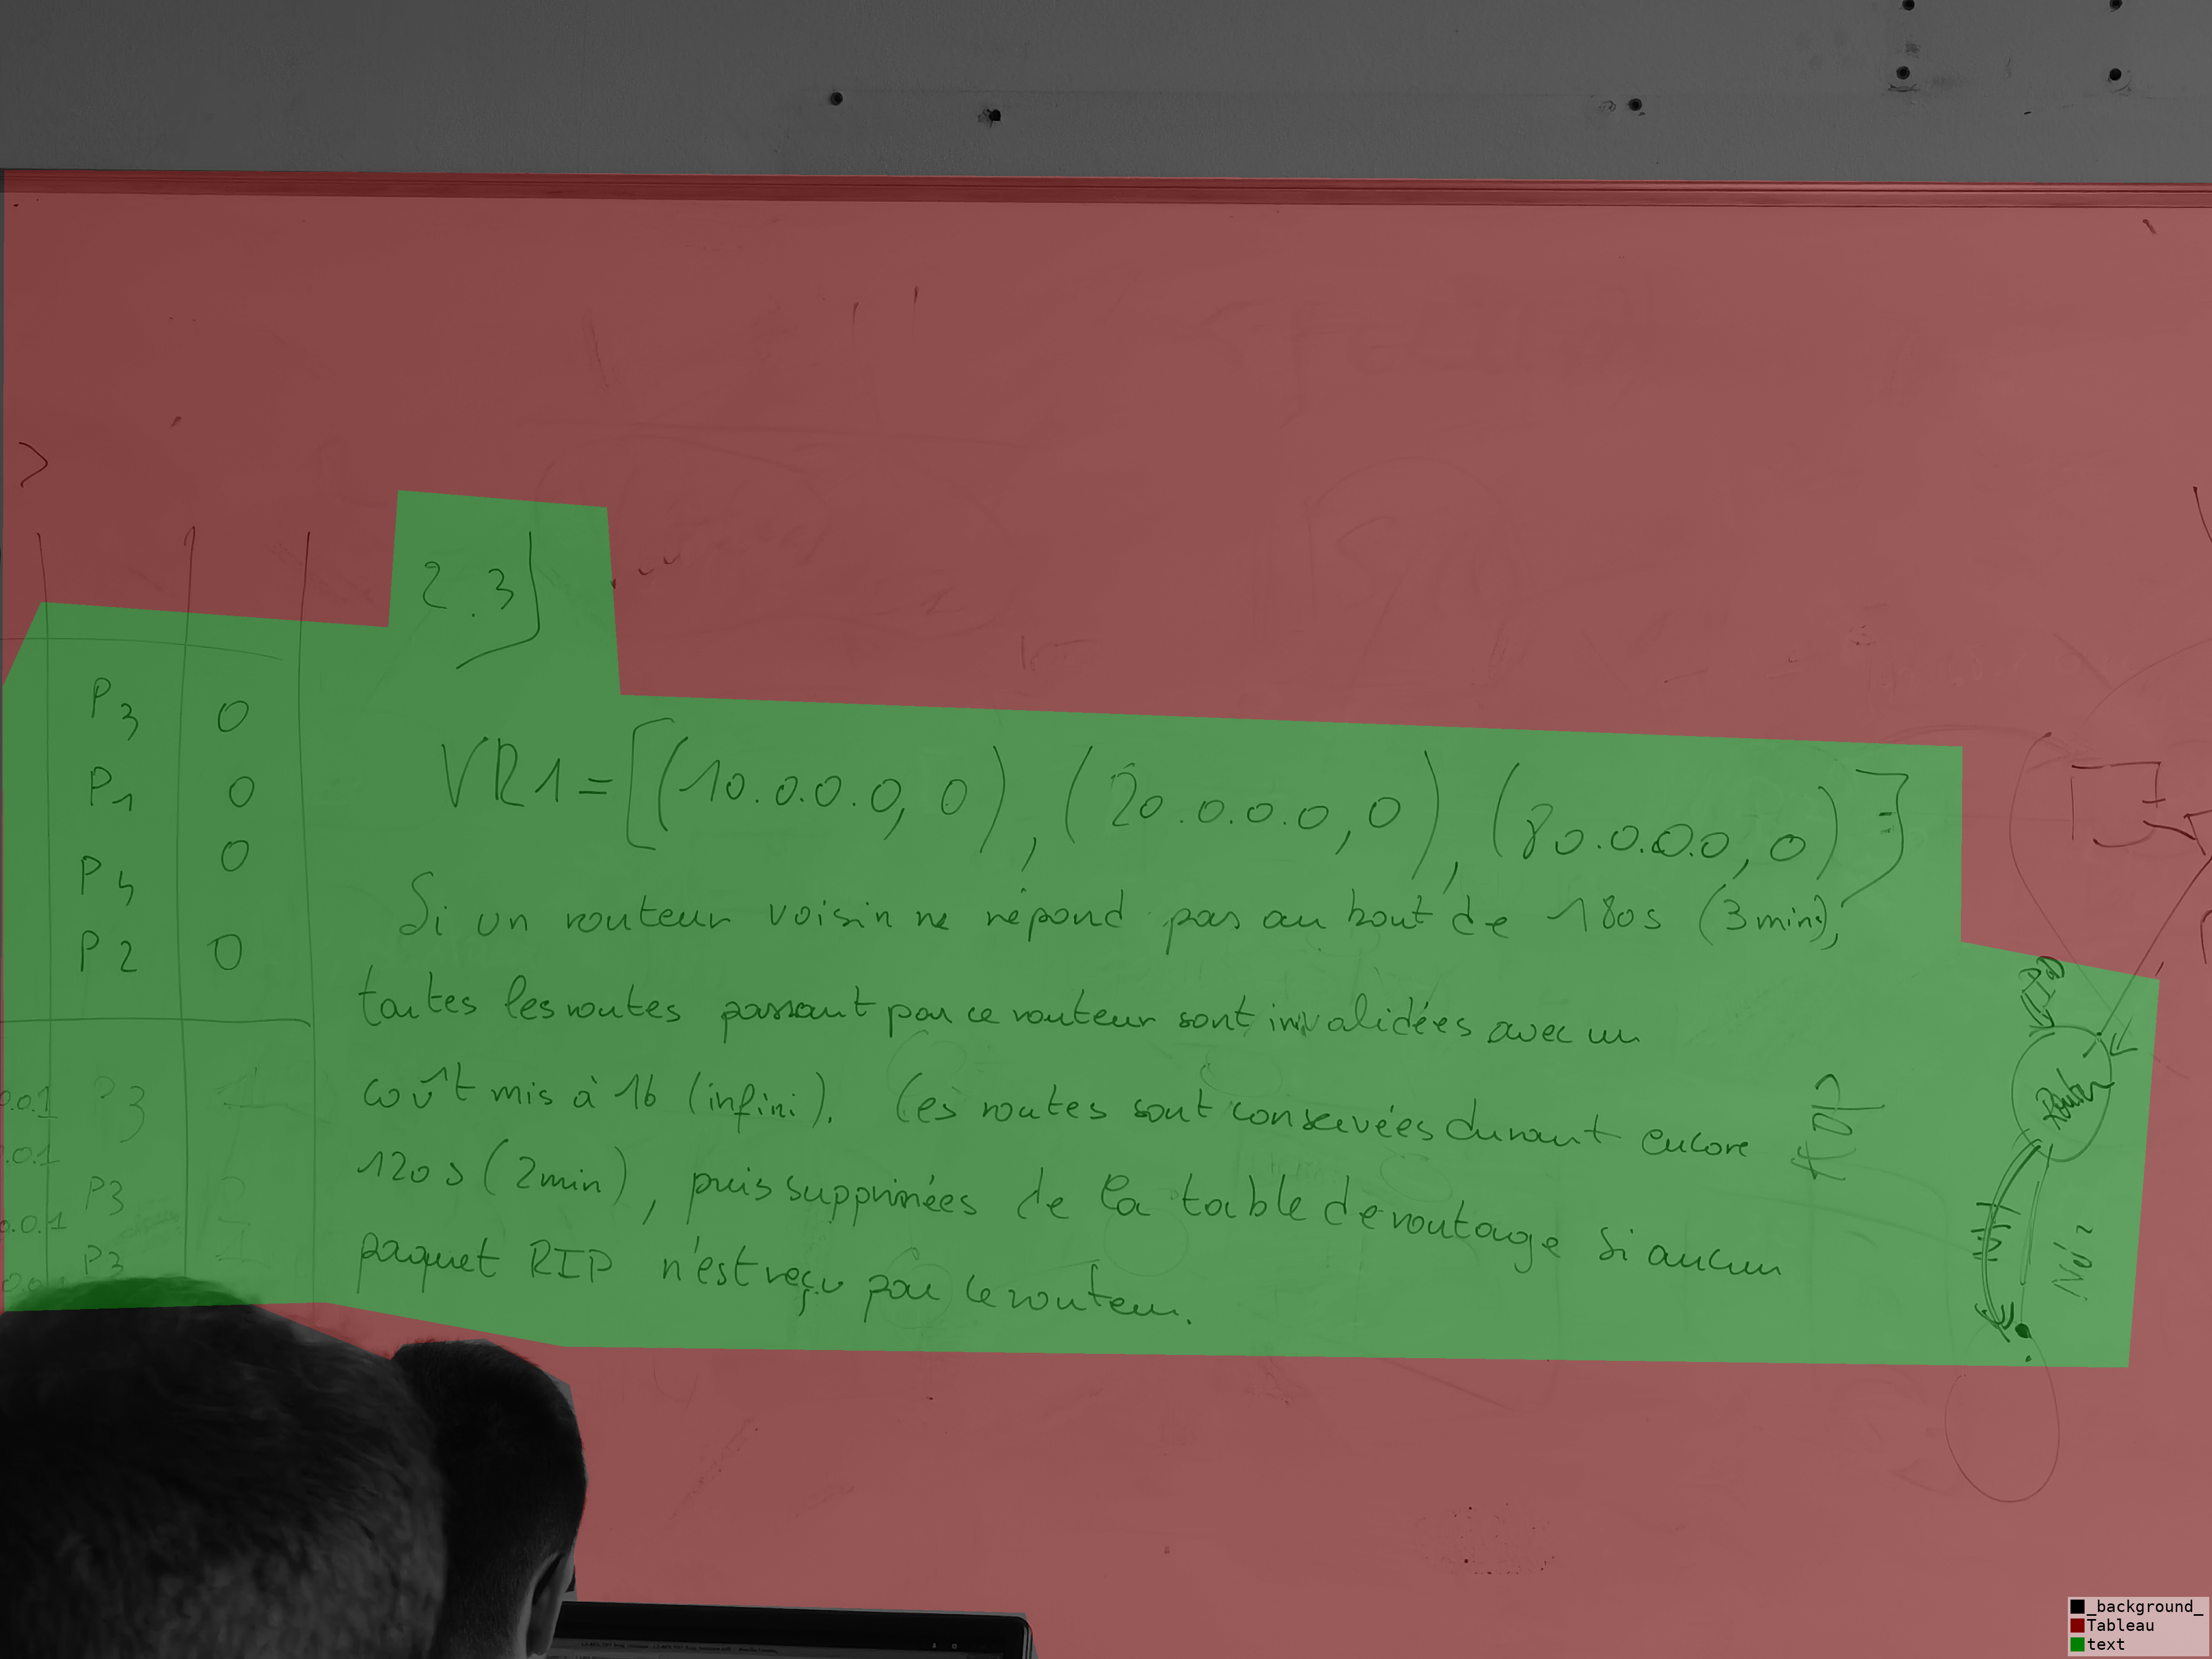 2.3)
P3 0
P1 0
P4 0
P2 0
0.0.1 P3 1
0.0.1
P3
0.0.1
P3 1
VR1 = [(10.0.0.0, 0), (20.0.0.0, 0), (80.0.0.0, 0)]
Si un routeur voisin ne répond pas au bout de 180s (3min),
toutes les routes passant par ce routeur sont invalidées avec un
coût mis à 16 (infini). Ces routes sont conservées durant encore
120s (2min), puis supprimées de la table de routage si aucun
paquet RIP n'est reçu par ce routeur.
Router
_background_
Tableau
text